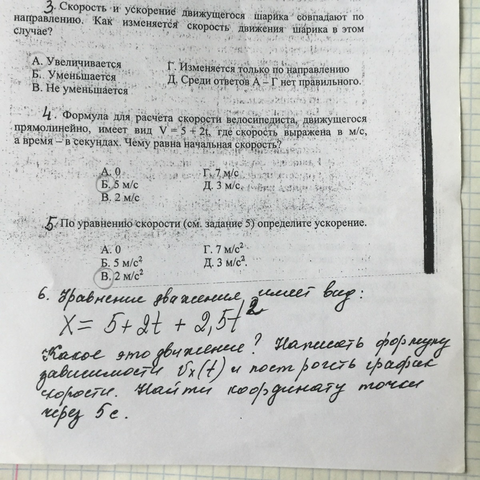 3. Скорость и ускорение движущегося шарика совпадают по
направлению. Как изменяется скорость движения шарика в этом
случае?
А. Увеличивается
Б. Уменьшается
В. Не уменьшается
Г. Изменяется только по направлению
Д. Среди ответов А – Г нет правильного.
4. Формула для расчета скорости велосипедиста, движущегося
прямолинейно, имеет вид V = 5 + 2t, где скорость выражена в м/с,
а время – в секундах. Чему равна начальная скорость?
А. 0
Б. 5 м/с
В. 2 м/с
Г. 7 м/с
Д. 3 м/с.
5. По уравнению скорости (см. задание 5) определите ускорение.
А. 0
Б. 5 м/с²
В. 2 м/с²
Г. 7 м/с².
Д. 3 м/с².
6. Уравнение движения имеет вид:
X = 5 + 2t + 2,5t²
Какое это движение? Написать формулу
зависимости Vx(t) и построить график
скорости. Найти координату точки
через 5с.